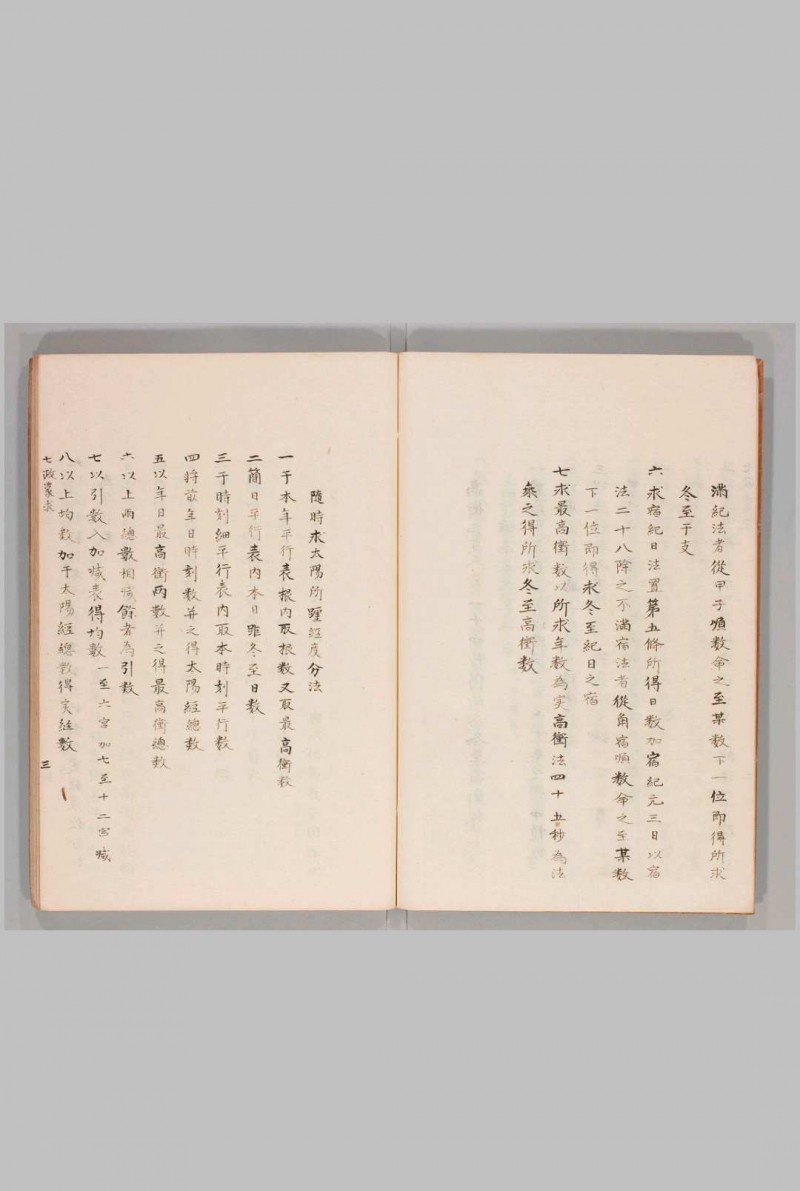 滿紀法者從甲子順數命之至某數下一位即得所求
冬至干支
六求宿紀日法置第五條所得日數加宿紀元三日以宿
法二十八除之不滿宿法者從角宿順數命之至某數
下一位即得求冬至紀日之宿
七求最高衝數以所求年數為实高衝法四十五秒為法
乘之得所求冬至高衝數
隨時求太陽所躔經度分法
一于本年平行表根內取根數又取最高衝數
二簡日平行表內本日距冬至日數
三于時刻細平行表內取本時刻平行數
四將前年日時刻數并之得太陽經總數
五以年日最高衝兩數并之得最高衝總數
六以上兩總數相減餘者為引數
七以引數入加減表得均數一至六宮加七至十二宮減
八以上均數加于太陽經總數得实経數
七政蒙求
三